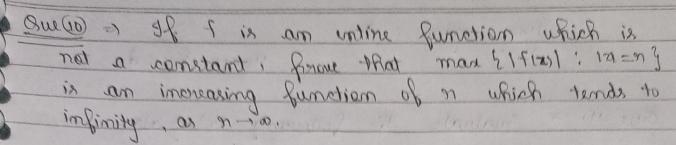 Que (10) ⇒ If f is an entire function which is
not a constant, prove that max {|f(z)| : |z|=n}
is an increasing function of n which tends to
infinity, as n→∞.